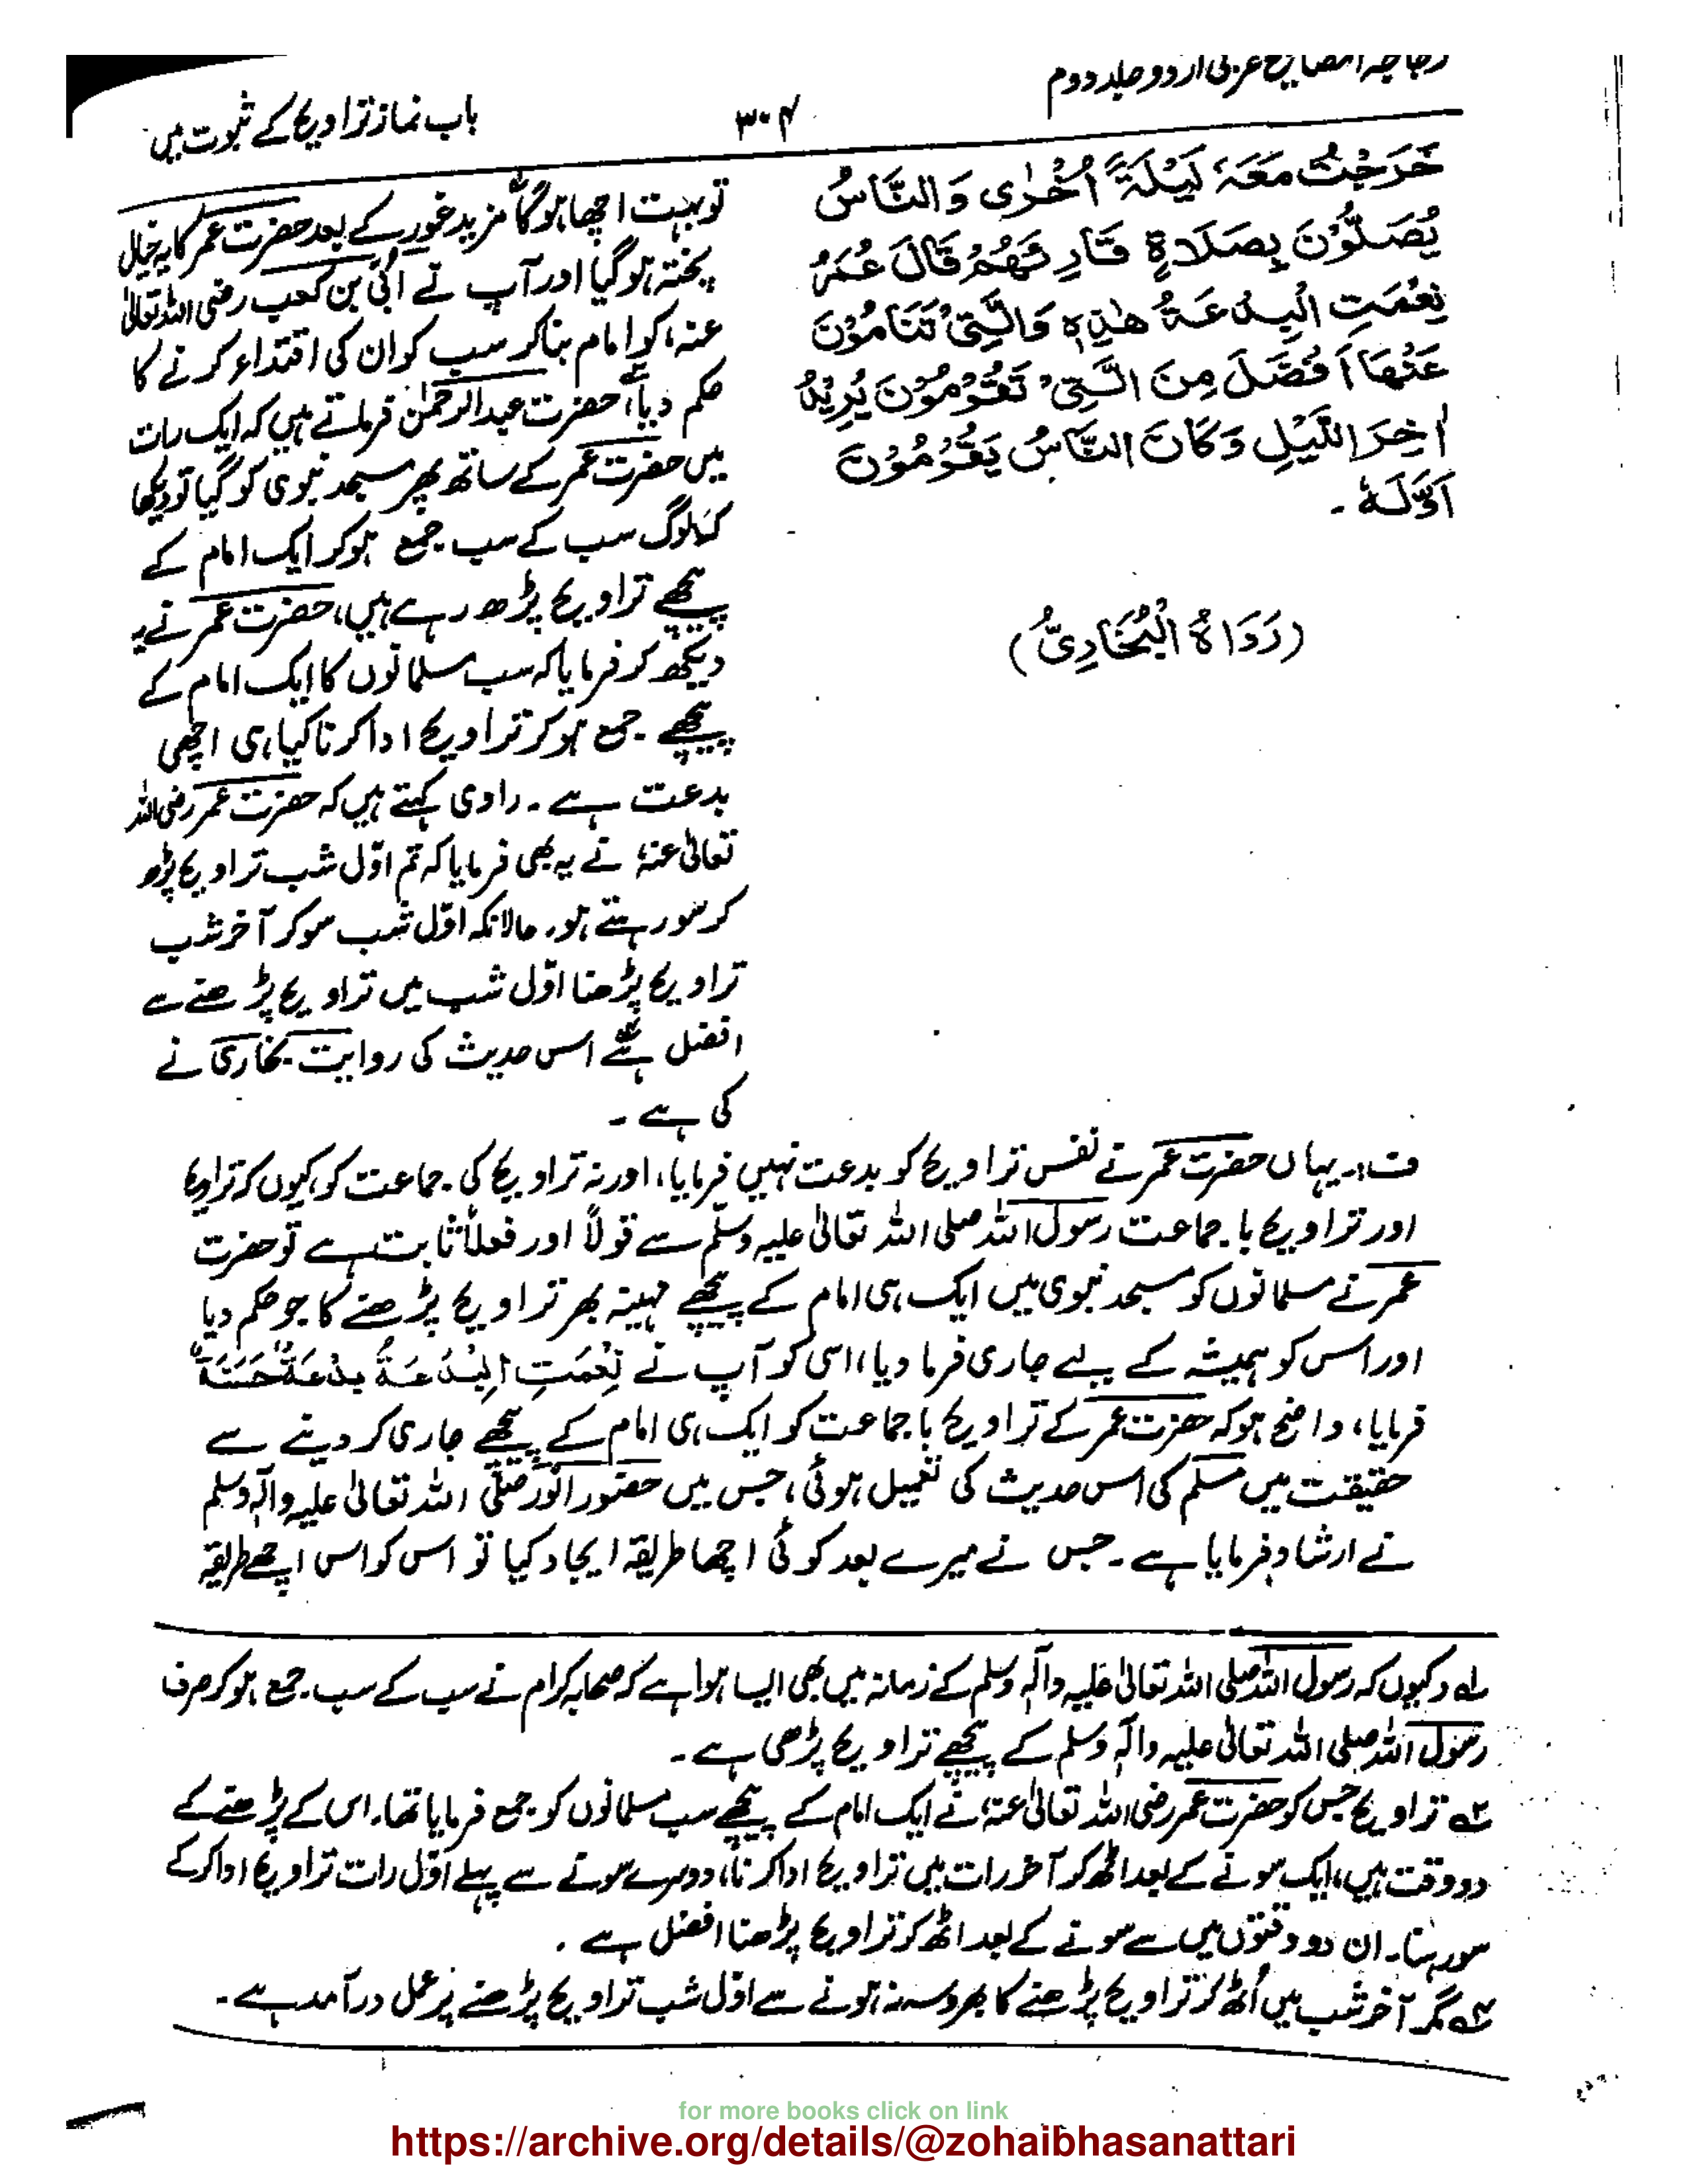 زجاجۃ المصابیح عربی اردو جلد دوم
۳۰۴
باب نماز تراویح کے ثبوت میں
خَرَجْتُ مَعَهٗ لَيْلَةً اُخْرٰى وَالنَّاسُ
يُصَلُّوْنَ بِصَلَاةِ قَارِئِهِمْ قَالَ عُمَرُ
نِعْمَتِ الْبِدْعَةُ هٰذِهٖ وَالَّتِىْ تَنَامُوْنَ
عَنْهَا اَفْضَلُ مِنَ الَّتِىْ تَقُوْمُوْنَ يُرِيْدُ
اٰخِرَ اللَّيْلِ وَكَانَ النَّاسُ يَقُوْمُوْنَ
اَوَّلَهٗ ۔
(رَوَاهُ الْبُخَارِىُّ)
تو بہت اچھا ہوگا مزید غور کے بعد حضرت عمر کا یہ خیال
پختہ ہوگیا اور آپ نے اُبی بن کعب رضی اللہ تعالیٰ
عنہ، کو امام بنا کر سب کو ان کی اقتداء کرنے کا
حکم دیا، حضرت عبدالرحمٰن فرماتے ہیں کہ ایک رات
میں حضرت عمر کے ساتھ پھر مسجد نبوی کو گیا تو دیکھا
کہ لوگ سب کے سب جمع ہوکر ایک امام کے
پیچھے تراویح پڑھ رہے ہیں، حضرت عمر نے یہ
دیکھ کر فرمایا کہ سب مسلمانوں کا ایک امام کے
پیچھے جمع ہوکر تراویح ادا کرنا کیا ہی اچھی
بدعت ہے۔ راوی کہتے ہیں کہ حضرت عمر رضی اللہ
تعالیٰ عنہٗ نے یہ بھی فرمایا کہ تم اوّل شب تراویح پڑھ
کر سو رہتے ہو، حالانکہ اوّل شب سوکر آخر شب
تراویح پڑھنا اوّل شب میں تراویح پڑھنے سے
افضل ہے اس حدیث کی روایت بخاری نے
کی ہے ۔
ف:۔ یہاں حضرت عمر نے نفس تراویح کو بدعت نہیں فرمایا، اور نہ تراویح کی جماعت کو، کیوں کہ تراویح
اور تراویح با جماعت رسول اللہ صلی اللہ تعالیٰ علیہ وسلّم سے قولاً اور فعلاً ثابت ہے تو حضرت
عمر نے مسلمانوں کو مسجد نبوی میں ایک ہی امام کے پیچھے مہینہ بھر تراویح پڑھنے کا جو حکم دیا
اور اس کو ہمیشہ کے لیے جاری فرما دیا، اسی کو آپ نے نِعْمَتِ الْبِدْعَةُ بِدْعَةٌ حَسَنَةٌ
فرمایا، واضح ہوکہ حضرت عمر کے تراویح با جماعت کو ایک ہی امام کے پیچھے جاری کر دینے سے
حقیقت میں مسلم کی اس حدیث کی تعمیل ہوئی، جس میں حضور انور صلّی اللہ تعالیٰ علیہ واٰلہٖ وسلم
نے ارشاد فرمایا ہے۔ جس نے میرے بعد کوئی اچھا طریقہ ایجاد کیا تو اس کو اس اچھے طریقہ
لہ کیوں کہ رسول اللہ صلی اللہ تعالیٰ علیہ واٰلہٖ وسلم کے زمانہ میں بھی ایسا ہوا ہے کہ صحابہ کرام نے سب کے سب جمع ہوکر صرف
رسول اللہ صلی اللہ تعالیٰ علیہ واٰلہٖ وسلم کے پیچھے تراویح پڑھی ہے۔
۲ہ تراویح جس کو حضرت عمر رضی اللہ تعالیٰ عنہٗ نے ایک امام کے پیچھے سب مسلمانوں کو جمع فرمایا تھا۔ اس کے پڑھنے کے
دو وقت ہیں، ایک سونے کے بعد اٹھ کر آخر رات میں تراویح ادا کرنا، دوسرے سونے سے پہلے اوّل رات تراویح ادا کرکے
سو رہنا۔ ان دو وقتوں میں سے سونے کے بعد اٹھ کر تراویح پڑھنا افضل ہے ۔
۳ہ مگر آخر شب میں اُٹھ کر تراویح پڑھنے کا بھروسہ نہ ہونے سے اوّل شب تراویح پڑھنے پر عمل درآمد ہے۔
for more books click on link
https://archive.org/details/@zohaibhasanattari